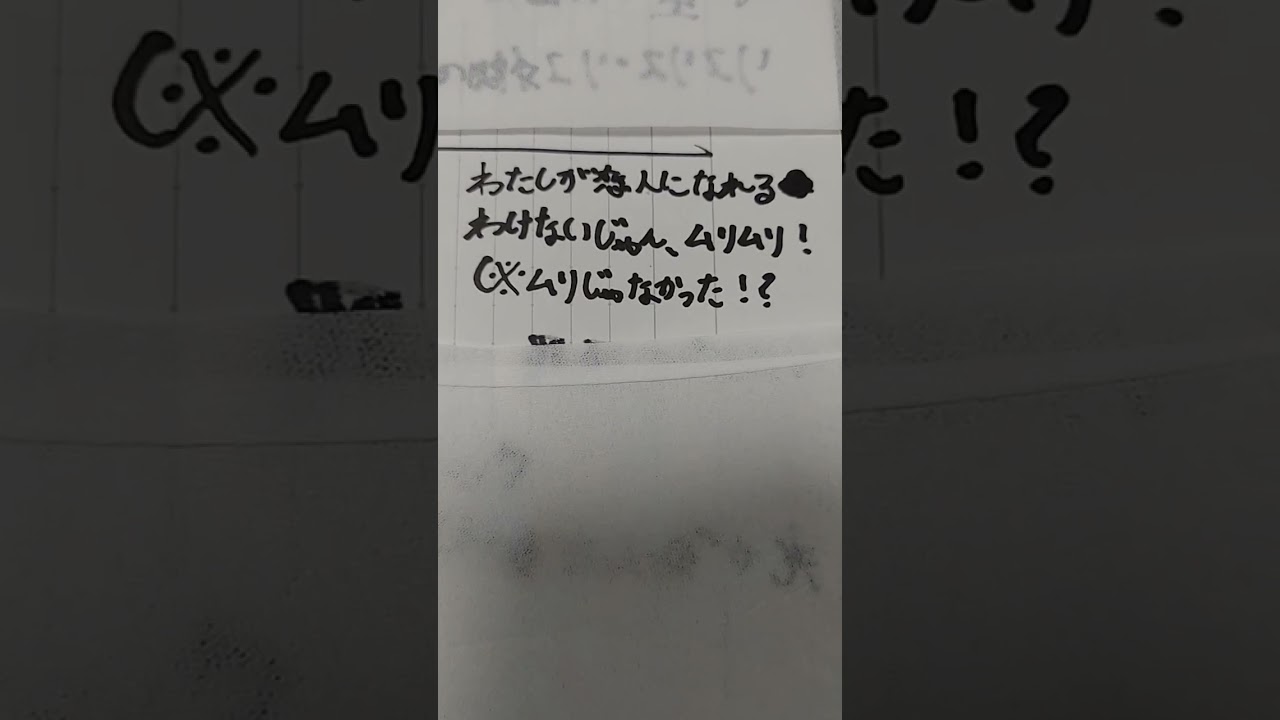 わたしが恋人になれる
わけないじゃん、ムリムリ!
(※ムリじゃなかった!?